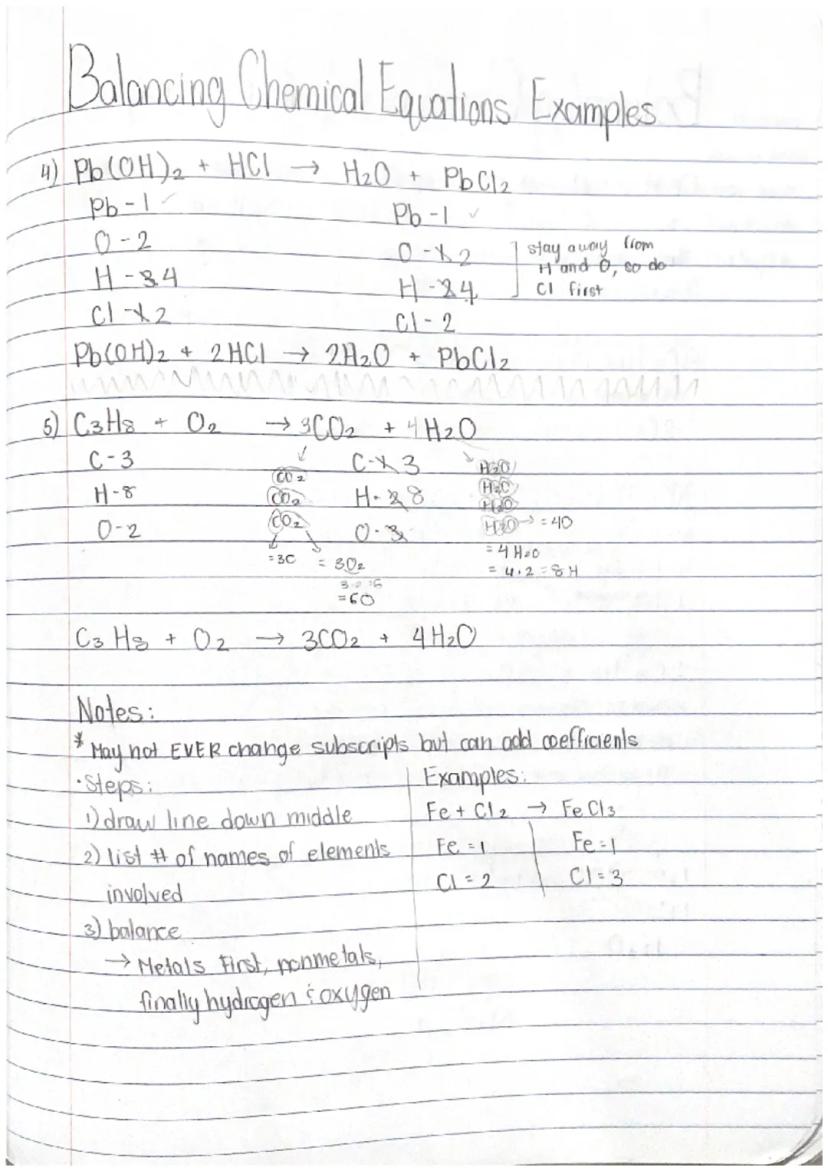 Balancing Chemical Equations Examples
4) Pb(OH)₂ + HCl → H₂O + PbCl₂
Pb - 1 ✓ Pb - 1 ✓
O - 2 O - 1 2
H - 3 4 H - 2 4
Cl - 1 2 Cl - 2
stay away from
H and O, so do
Cl first
Pb(OH)₂ + 2HCl → 2H₂O + PbCl₂
5) C₃H₈ + O₂ → 3CO₂ + 4H₂O
C - 3 C - 1 3
H - 8 H - 2 8
O - 2 O - 3
CO₂
CO₂
CO₂
= 3C = 3O₂
= 6O
H₂O
H₂O
H₂O
H₂O → = 4O
= 4H₂O
= 4 · 2 = 8H
C₃H₈ + O₂ → 3CO₂ + 4H₂O
Notes:
* May not EVER change subscripts but can add coefficients
· Steps:
1) draw line down middle
2) list # of names of elements
involved
3) balance
→ Metals First, nonmetals,
finally hydrogen & oxygen
Examples:
Fe + Cl₂ → FeCl₃
Fe = 1 Fe = 1
Cl = 2 Cl = 3